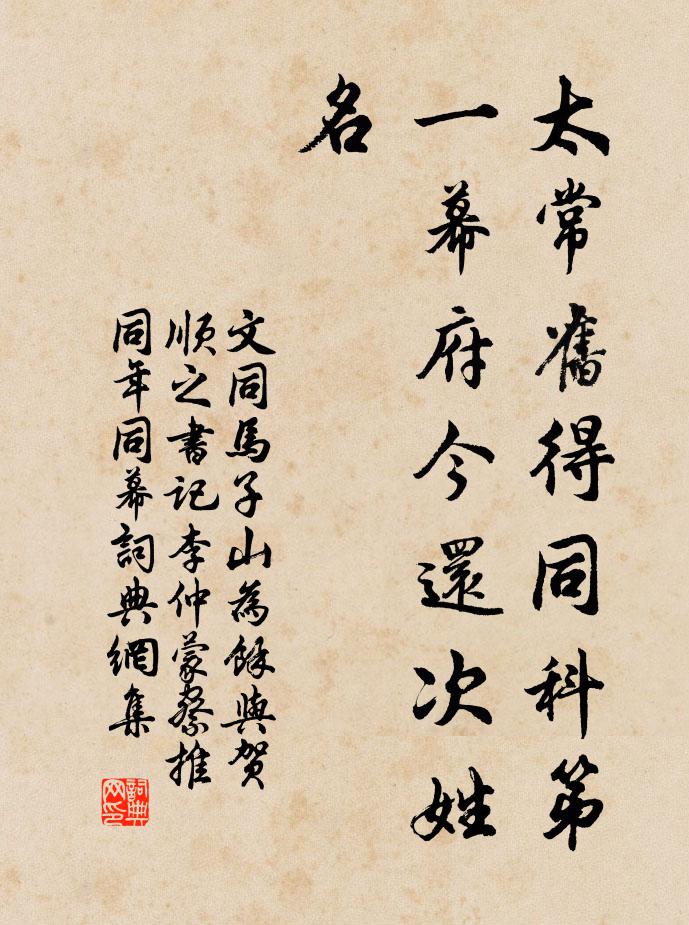 太常舊得同科第
一幕府今還次姓
名
文同馬子山為餘與賀
順之書記李仲蒙察推
同年同幕詞典網集
詞典网印